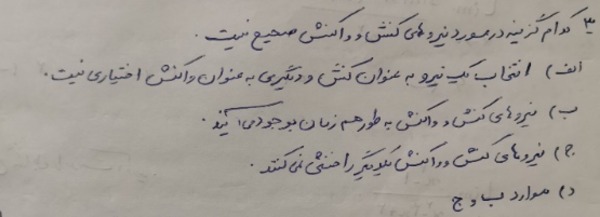 ۳- کدام گزینه در مورد نیروهای کنش و واکنش صحیح نیست.
الف) انتخاب یک نیرو به عنوان کنش و دیگری به عنوان واکنش اختیاری نیست.
ب) نیروهای کنش و واکنش به طور هم زمان بوجود می آیند.
ج) نیروهای کنش و واکنش یکدیگر را خنثی نمی کنند.
د) موارد ب و ج